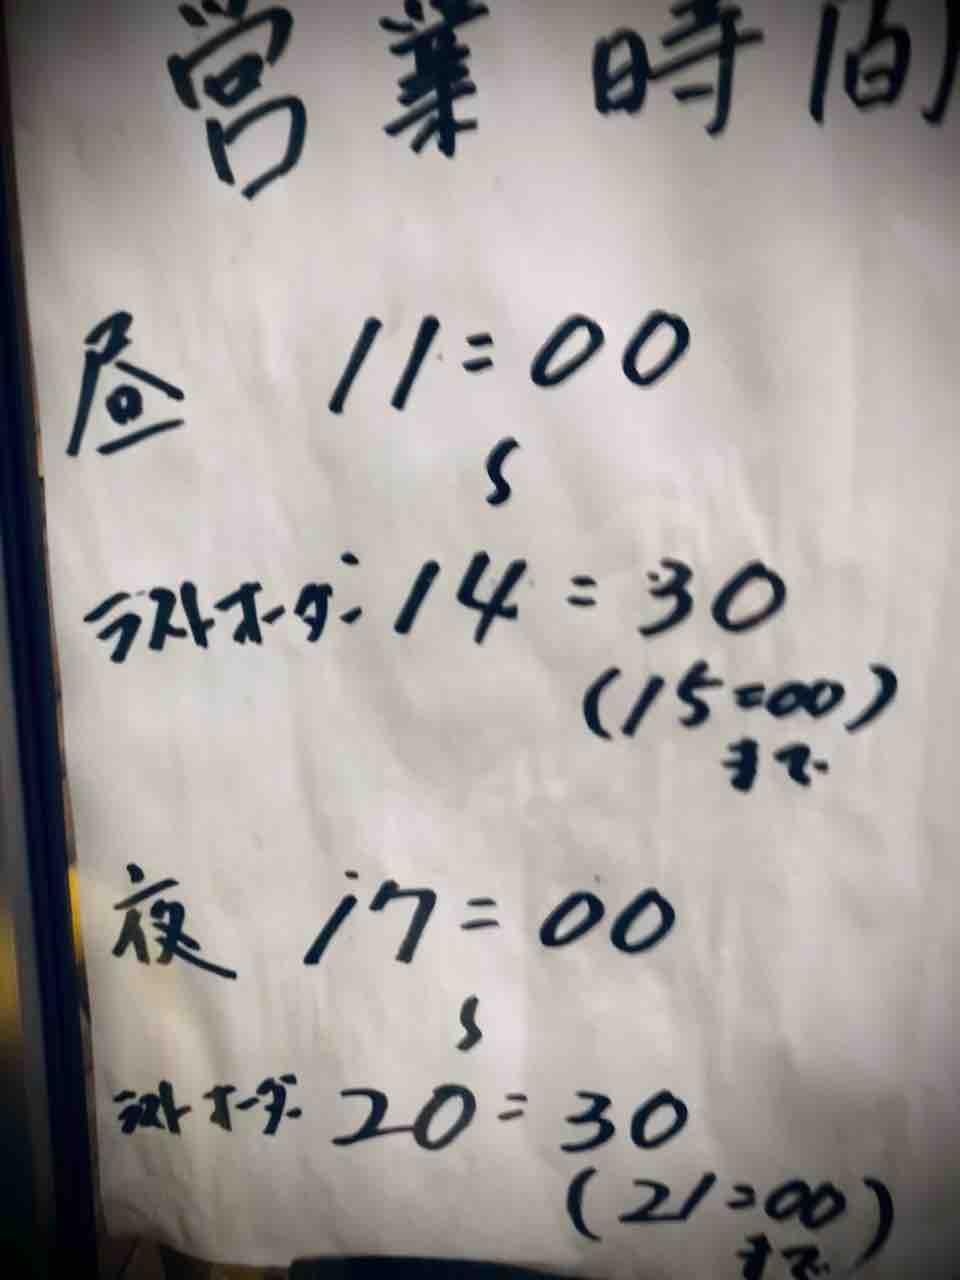 営業時間
昼 11:00
〜
ラストオーダー 14:30
(15:00)
まで
夜 17:00
〜
ラストオーダー 20:30
(21:00)
まで